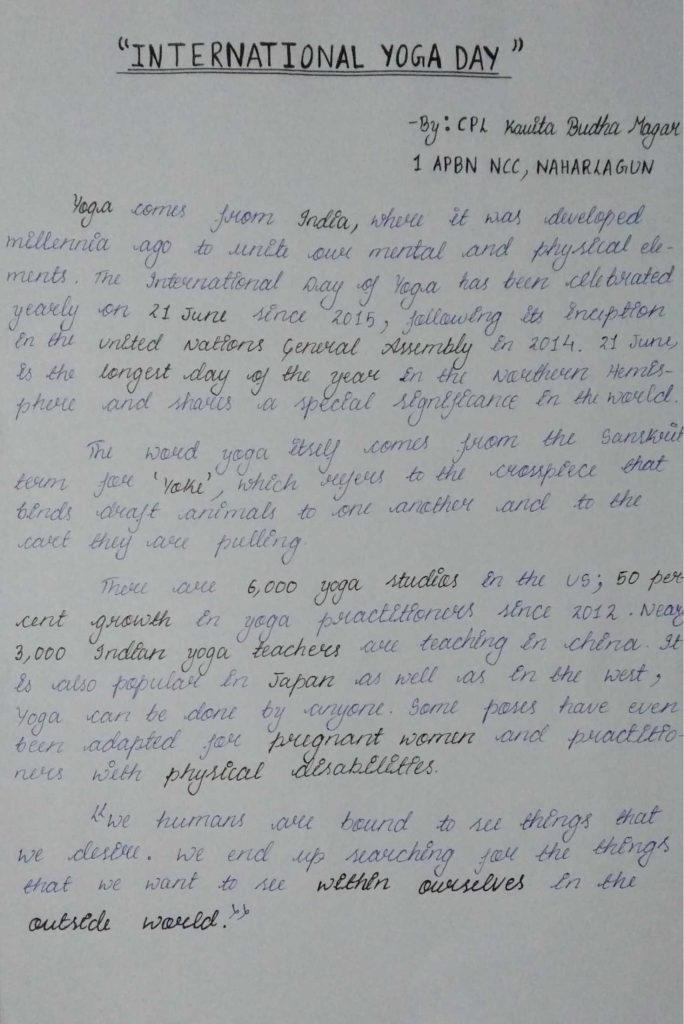 “INTERNATIONAL YOGA DAY”
-By: CPL Kavita Budha Magar
1 APBN NCC, NAHARLAGUN
Yoga comes from India, where it was developed
millennia ago to unite our mental and physical ele-
ments. The International Day of Yoga has been celebrated
yearly on 21 June since 2015, following its inception
in the united Nations General Assembly in 2014. 21 June,
is the longest day of the year in the Northern Hemis-
phere and shares a special significance in the world.
The word yoga itself comes from the Sanskrit
term for 'Yoke', which refers to the crosspiece that
binds draft animals to one another and to the
cart they are pulling.
There are 6,000 yoga studios in the US; 50 per
cent growth in yoga practitioners since 2012. Near
3,000 Indian yoga teachers are teaching in china. It
is also popular in Japan as well as in the west,
Yoga can be done by anyone. Some poses have even
been adapted for pregnant women and practitio-
ners with physical disabilities.
“We humans are bound to see things that
we desire. We end up searching for the things
that we want to see within ourselves in the
outside world.”